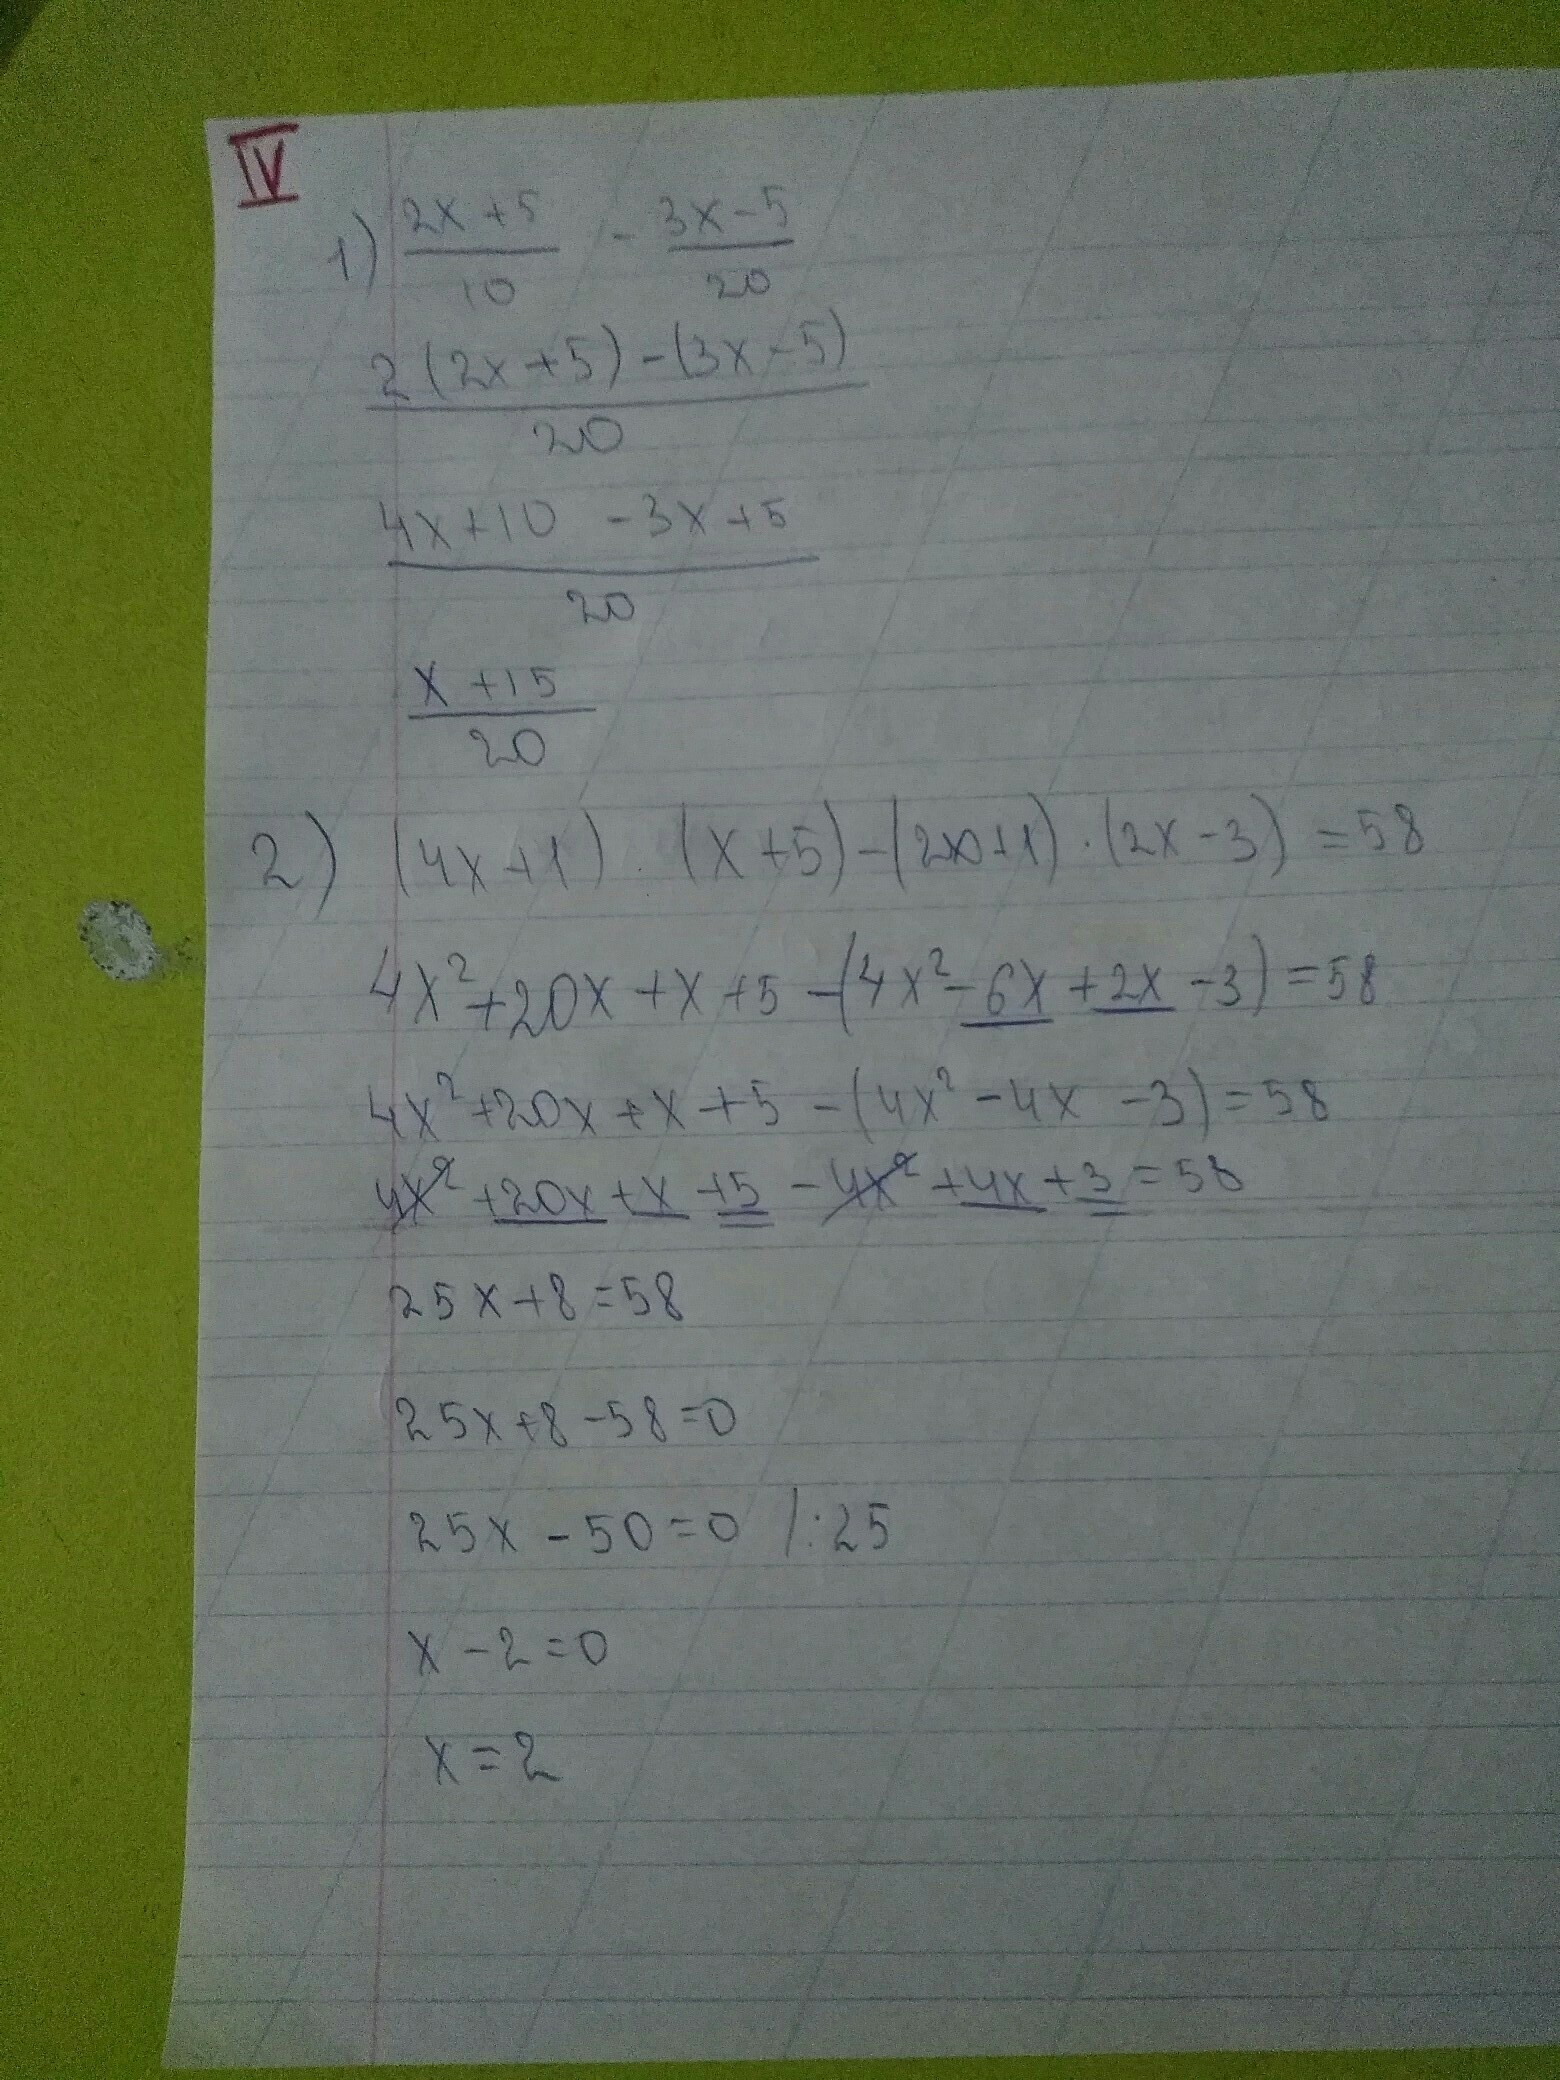 IV
1) 2x+5 - 3x-5
10 20
2(2x+5)-(3x-5)
20
4x+10 -3x+5
20
x+15
20
2) (4x+1)·(x+5)-(2x+1)·(2x-3)=58
4x²+20x+x+5-(4x²-6x+2x-3)=58
4x²+20x+x+5-(4x²-4x-3)=58
4x²+20x+x+5-4x²+4x+3=58
25x+8=58
25x+8-58=0
25x-50=0 /:25
x-2=0
x=2